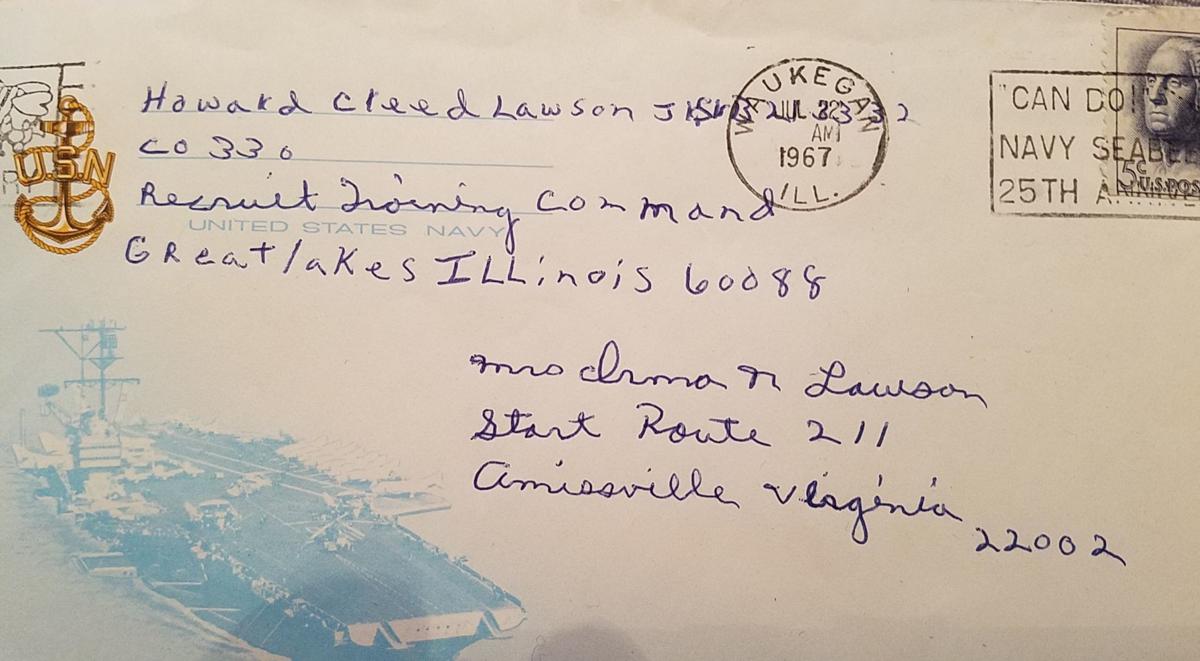 Howard Creed Lawson
CO 330
Recruit Training Command
UNITED STATES NAVY
Great lakes ILLinois 60088
U.S.N
WAUKEGAN
JUL 22
AM
1967
ILL.
"CAN DO!"
NAVY SEABEE
25TH
5¢
U.S.POS
Mrs Irma N Lawson
Start Route 211
Amissville Virginia
22002